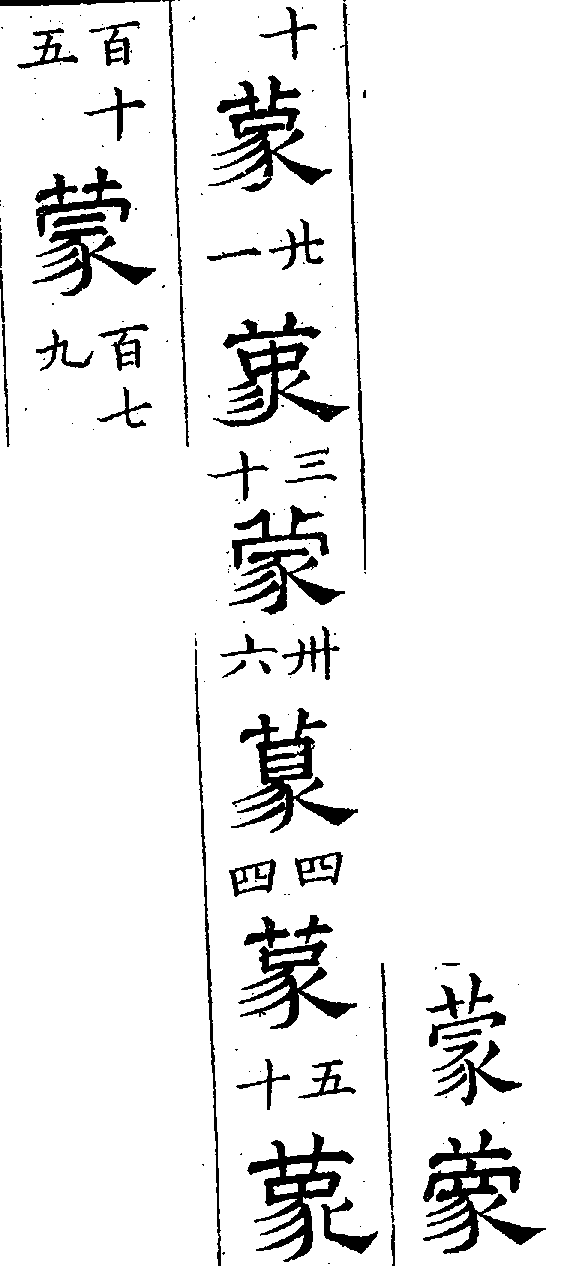 蒙蒙
十蒙廿一蒙三十蒙卅六蒙四四蒙五十蒙
百十五蒙百七九